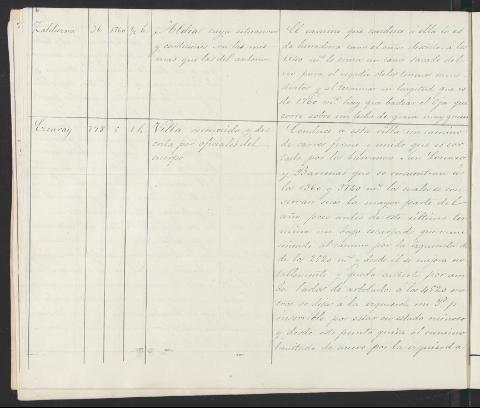 Zaldierna 36 1760 ½ h. Aldea cuya situacion
y condiciones son las mis-
mas que las del anterior
El camino que conduce a ella lo es
de herradura como el antes descrito á los
1240 m.s le cruza un cauce sacado del
rio para el regadio de los terrenos inme-
diatos y al terminar su longitud que es
de 1760 m.s hay que badear el Oja que
corre sobre un lecho de grava muy gruesa
Ezcaray 778 5 1 h. Villa reconocida y des-
crita por oficiales del
cuerpo
Conduce a esta villa un camino
de carros firme y unido que es cor-
tado por los barrancos
y Barrenas que se encuentran á
los 1360 y 3740 m.s los cuales se con-
servan secos la mayor parte del
año poco antes de este último ter-
mina un bajo escarpado que venia
ciñendo al camino por la izquierda des-
de los 2520 m.s y desde él se mejora no-
tablemente y queda cubierto por am-
bos lados de arbolado: á los 4520 me-
tros se deja á la izquierda un P.te
inservible por estar en estado ruinoso
y desde este punto guia el camino
faldeado de nuevo por la izquierda